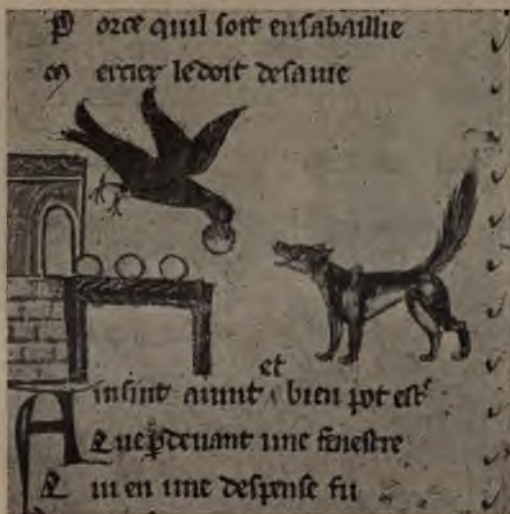 P orce quil soit en sa baillie
M ercier le doit de sa vie
A insint avint et bien pot estre
Q ue p devant une fenestre
Q ui en une despense fu